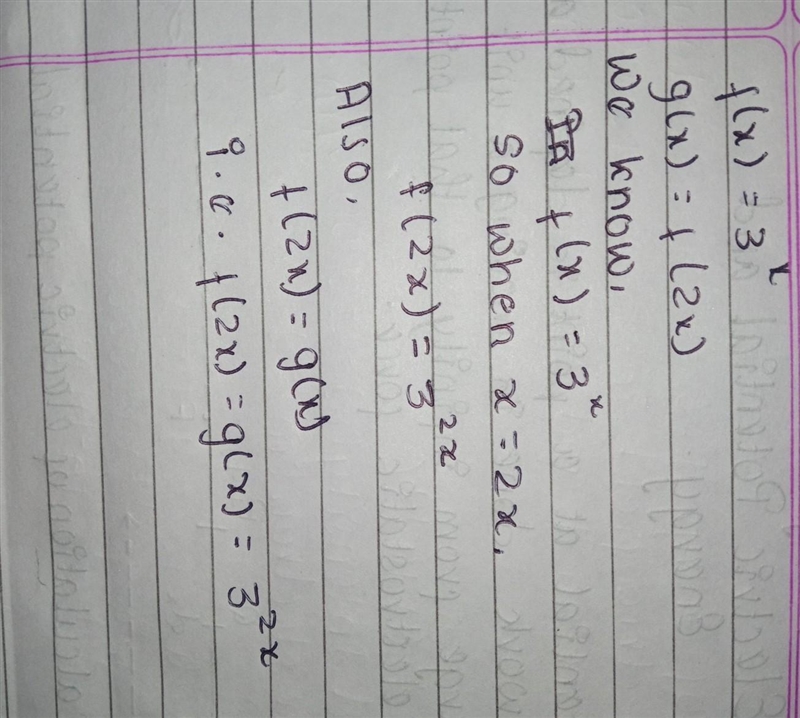 f(x) = 3^x
g(x) = f(2x)
We know,
f(x) = 3^x
So when x = 2x,
f(2x) = 3^2x
Also,
f(2x) = g(x)
i.e. f(2x) = g(x) = 3^2x